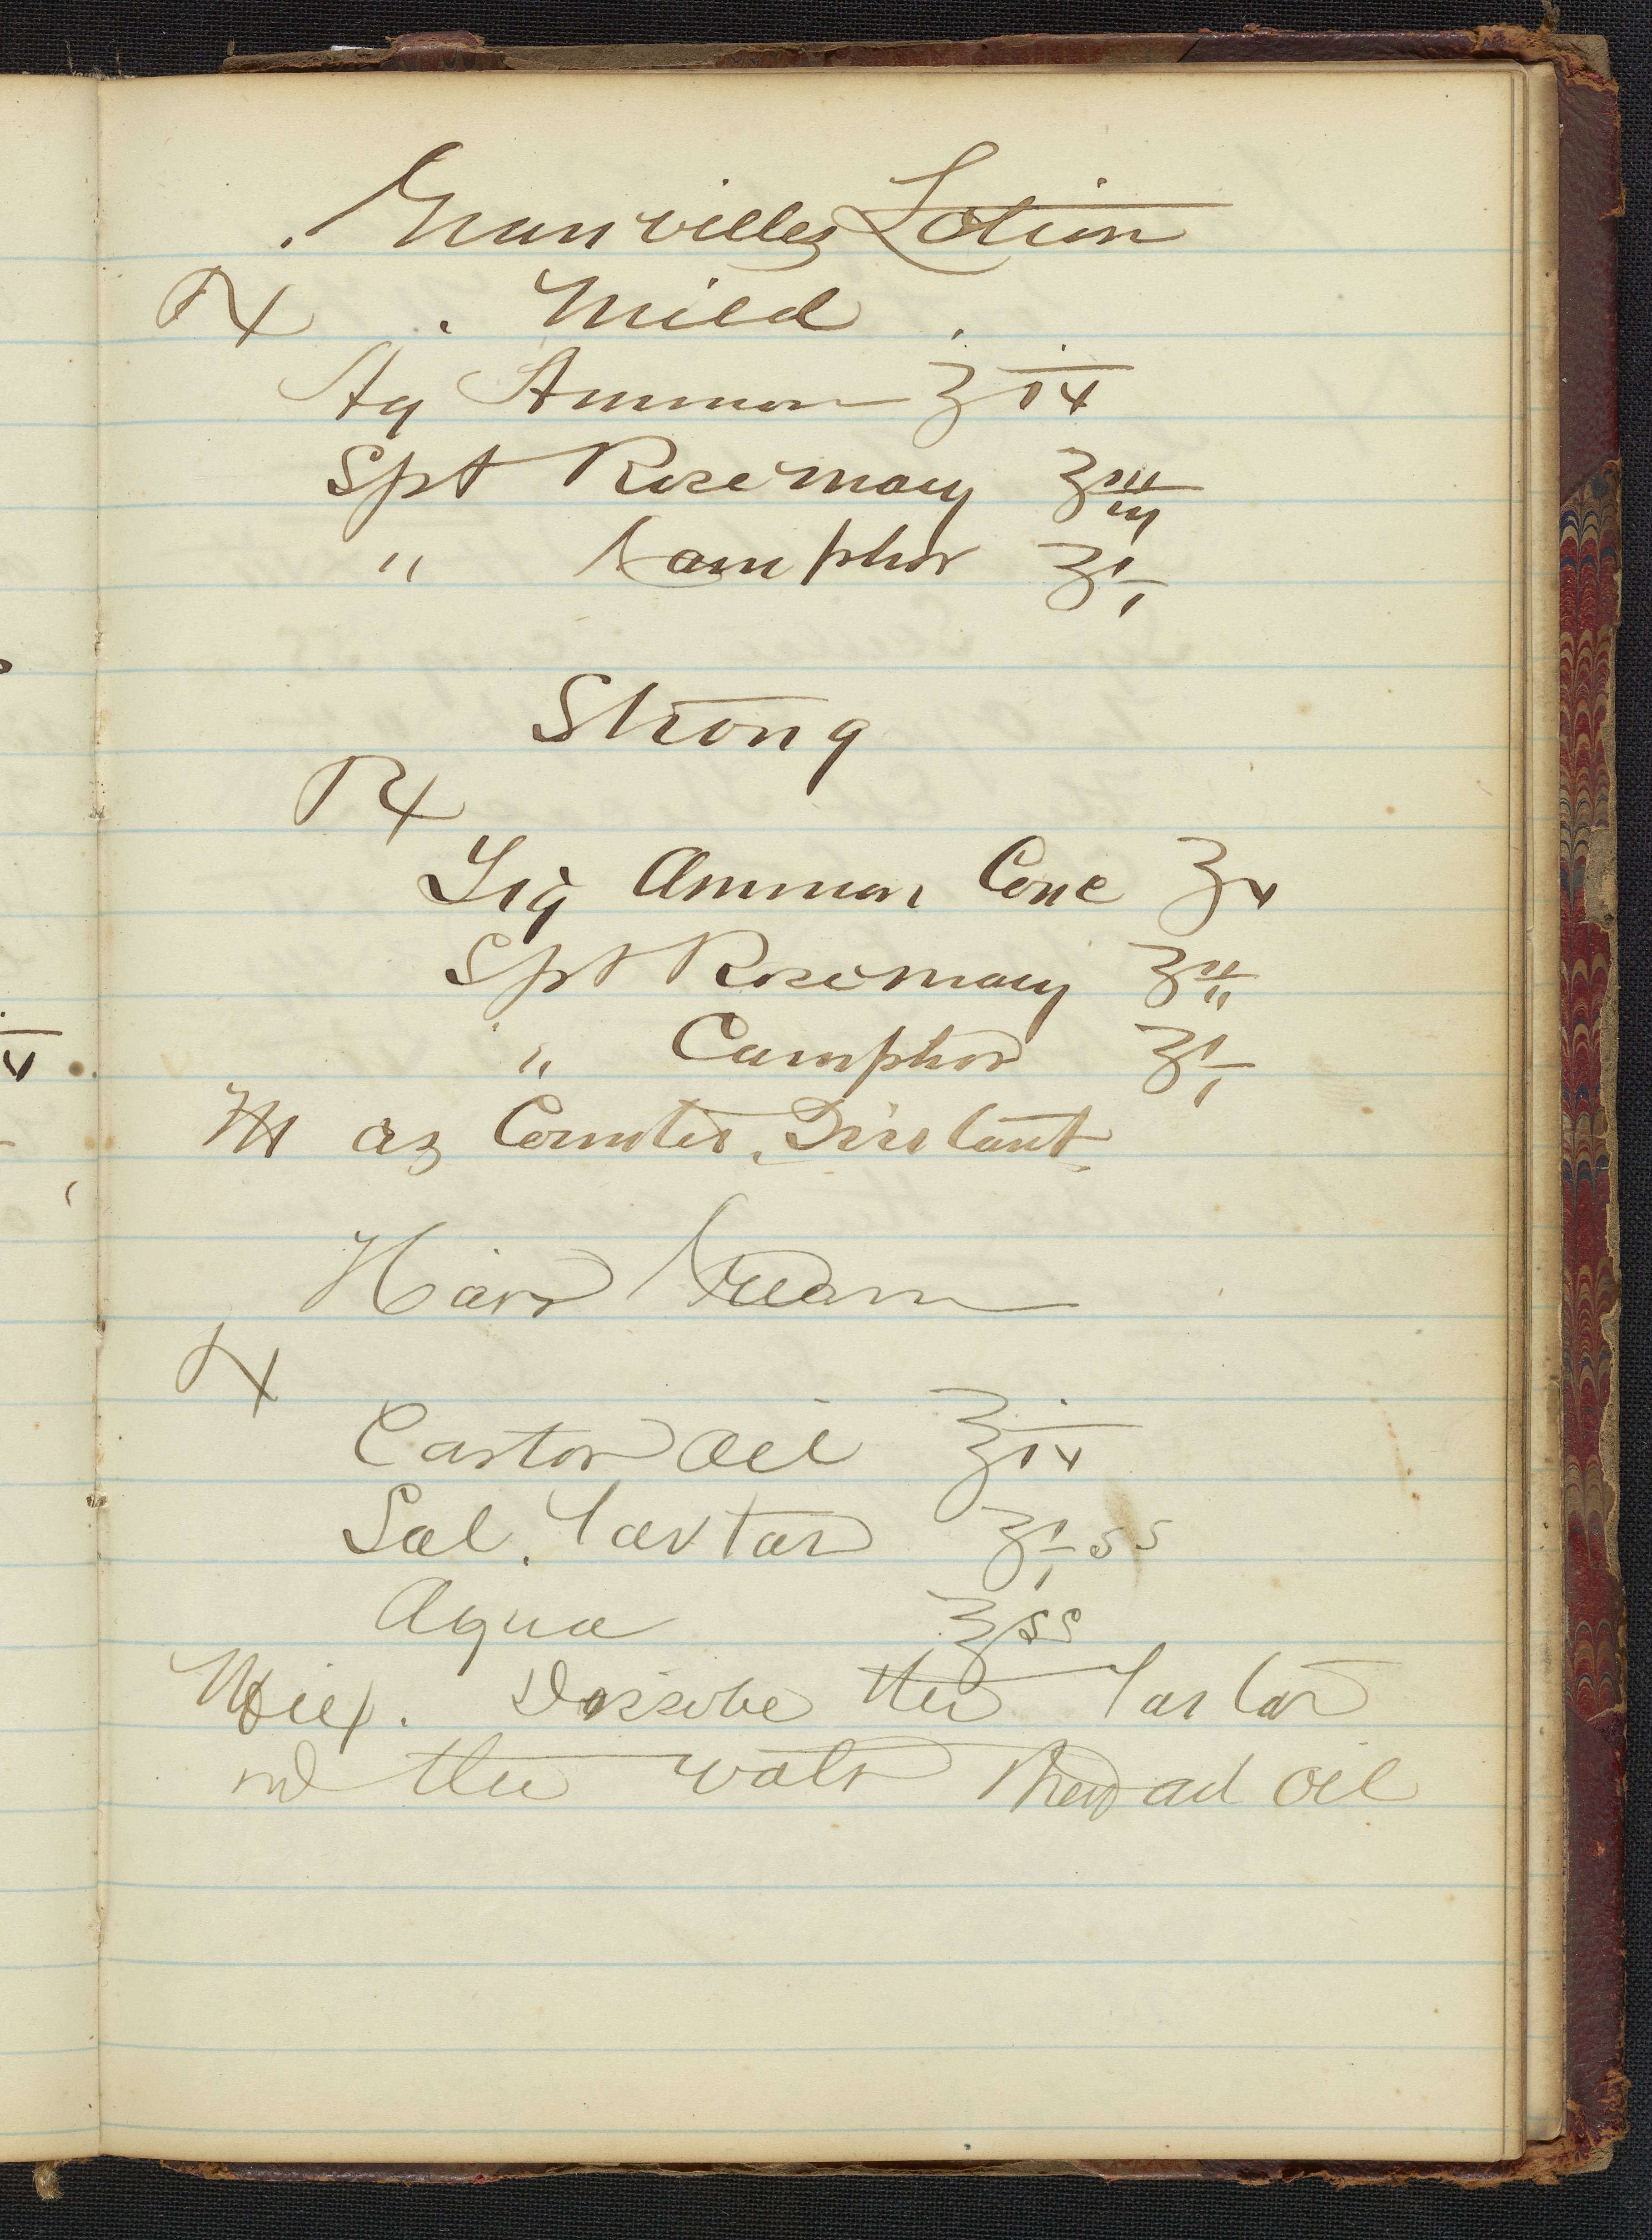 Granvilles Lotion
℞ . Mild .
Aq Ammon ℥ iv
Spt Rosemary ʒ iii
" Camphor ʒ i
Strong
℞
Liq Ammon Conc ℥ v
Spt Rosemary ʒ ii
" Camphor ʒ i
M as Counter Irritant
Hair Cream
℞
Castor Oil ℥ iv
Sal. Tartar ʒ i ss
Aqua ℥ ss
Mix. Dissolve the Tartar
in the water then ad oil
v